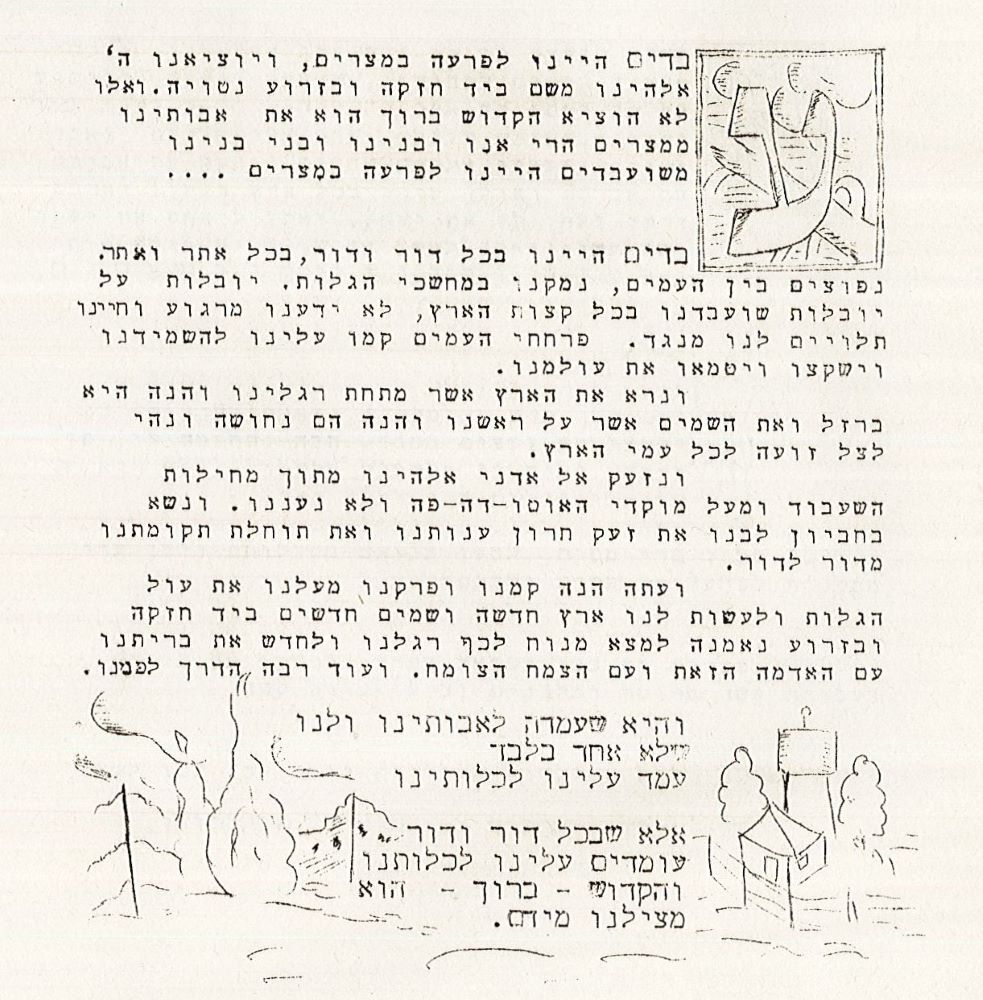 עבדים היינו לפרעה במצרים, ויוציאנו ה'
אלהינו משם ביד חזקה ובזרוע נטויה.ואלו
לא הוציא הקדוש ברוך הוא את אבותינו
ממצרים הרי אנו ובנינו ובני בנינו
משועבדים היינו לפרעה במצרים ....
בדים היינו בכל דור ודור,בכל אתר ואתר.
נפוצים בין העמים, נמקנו במחשכי הגלות. יובלות על
יובלות שועבדנו בכל קצות הארץ, לא ידענו מרגוע וחיינו
תלויים לנו מנגד. פרחחי העמים קמו עלינו להשמידנו
וישקצו ויטמאו את עולמנו.
ונרא את הארץ אשר מתחת רגלינו והנה היא
ברזל ואת השמים אשר על ראשנו והנה הם נחושה ונהי
לצל זועה לכל עמי הארץ.
ונזעק אל אדני אלהינו מתוך מחילות
השעבוד ומעל מוקדי האוטו-דה-פה ולא נעננו. ונשא
בחביון לבנו את זעק חרון ענותנו ואת תוחלת תקומתנו
מדור לדור.
ועתה הנה קמנו ופרקנו מעלנו את עול
הגלות ולעשות לנו ארץ חדשה ושמים חדשים ביד חזקה
ובזרוע נאמנה למצא מנוח לכף רגלנו ולחדש את בריתנו
עם האדמה הזאת ועם הצמח הצומח. ועוד רבה הדרך לפנינו.
והיא שעמדה לאבותינו ולנו
שלא אחד בלבד
עמד עלינו לכלותינו
אלא שבכל דור ודור
עומדים עלינו לכלותנו
והקדוש - ברוך - הוא
מצילנו מידם.